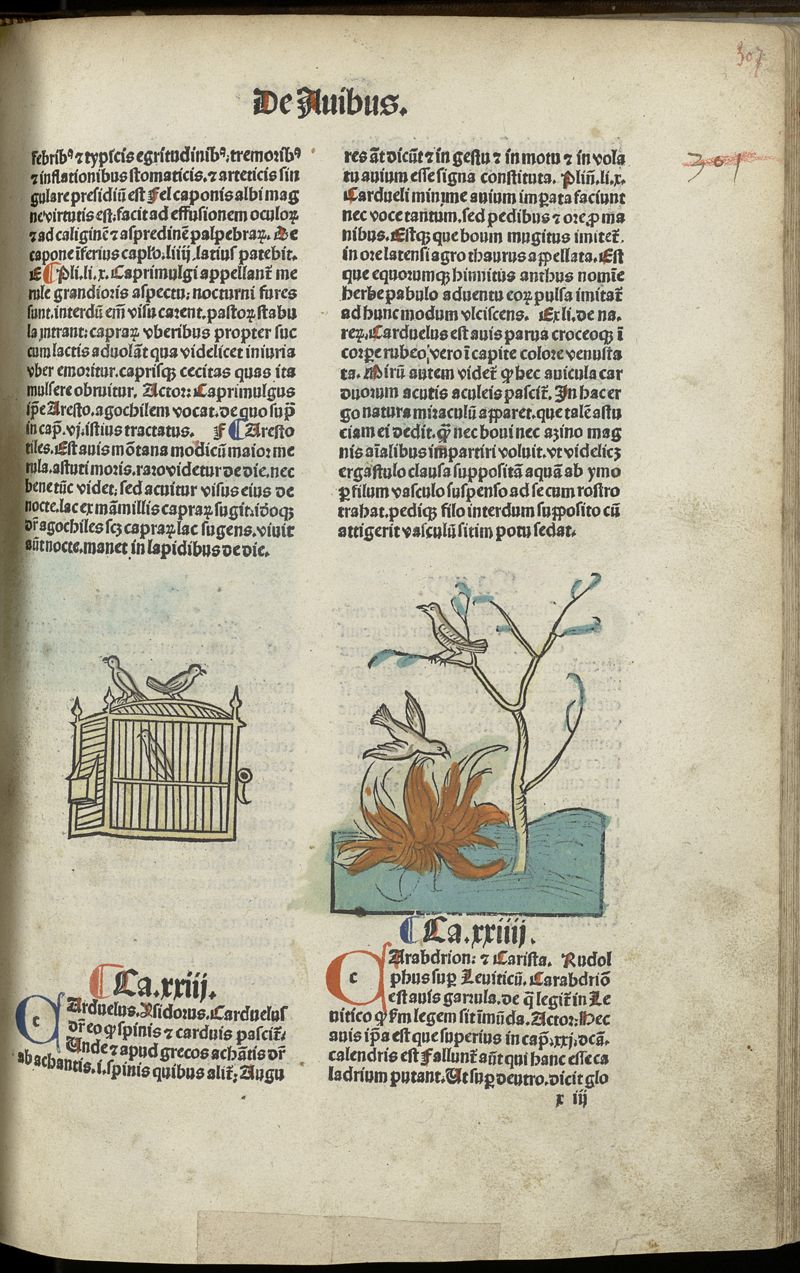 307
De Auibus.
301
febribꝰ ⁊ typicis egritudinibꝰ, tremoribꝰ
⁊ inflationibus stomaticis, ⁊ arteticis sin
gulare presidiū est Fel caponis albi mag
ne virtutis est, facit ad effusionem oculoꝝ
⁊ ad caliginē ⁊ aspredinē palpebraꝝ. De
capone īferius capľo. liiij. latius patebit.
E Pli. li. x. Caprimulgi appellant̄ me
rule grandioris aspectu: nocturni fures
sunt. interdiu em̄ visu carent. pastoꝝ stabu
la intrant: capraꝝ vberibus propter suc
cum lactis aduolāt qua videlicet iniuria
vber emoritur. caprisqꝫ cecitas quas ita
mulsere obruitur. Actor: Caprimulgus
ip̄e Aresto. agochilem vocat. de quo supͣ
in cap̄. vj. istius tractatus. F Aresto
tiles. Est auis mōtana modicū maior me
rula. astuti moris. raro videtur de die. nec
bene tūc videt: sed acuitur visus eius de
nocte. lac ex māmillis capraꝝ sugit. idoqꝫ
dr̄ agochiles scꝫ capraꝝ lac sugens. viuit
aūt nocte. manet in lapidibus de die.
Ca. xxiij.
CArduelus. Ysidorus. Carduelus
dr̄ eo ꝙ spinis ⁊ carduis pascit̄.
Unde ⁊ apud grecos achātis dr̄
ab achantis. i. spinis quibus alit̄: Augu
res āt dicūt ⁊ in gestu ⁊ in motu ⁊ in vola
tu auium esse signa constituta. Plin̄. li. x.
Cardueli minime auium imperata faciunt
nec voce tantum. sed pedibus ⁊ ore ꝓ ma
nibus. Estqꝫ que boum mugitus imitet̄.
in orelatensi agro thaurus appellata. Est
que equorumqꝫ hinnitus anthus nomīe
herbe pabulo aduentu eoꝝ pulsa imitat̄
ad hunc modum vlciscens. Ex li. de na.
reꝝ. Carduelus est auis parua croceoqꝫ ī
corꝑe rubeo vero ī capite colore venusta
ta. Mirū autem videt̄ ꝙ hec auicula car
duorum acutis aculeis pascit̄. In hac er
go natura miraculū apparet. que talē astu
ciam ei dedit. qͣꝫ nec boui nec azino mag
nis aīalibus impartiri voluit. vt videlicꝫ
ergastulo clausa suppositā aquā ab ymo
ꝑ filum vasculo suspenso ad se cum rostro
trahat. pedicqꝫ filo interdum supposito cū
attigerit vasculū sitim potu sedat.
Ca. xxiiij.
CArabdrion: ⁊ Carista. Rudol
phus suꝑ Leuiticū. Carabdriō
est auis garrula. de q̄ legit̄ in Le
uitico ꝙ ẜm legem sit īmūda. Actor: Hec
auis ip̄a est que superius in cap̄. xxj. dcā.
calendris est Fallunt̄ aūt qui hanc esse ca
ladrium putant. Ut suꝑ deutro. dicit glo
x iij